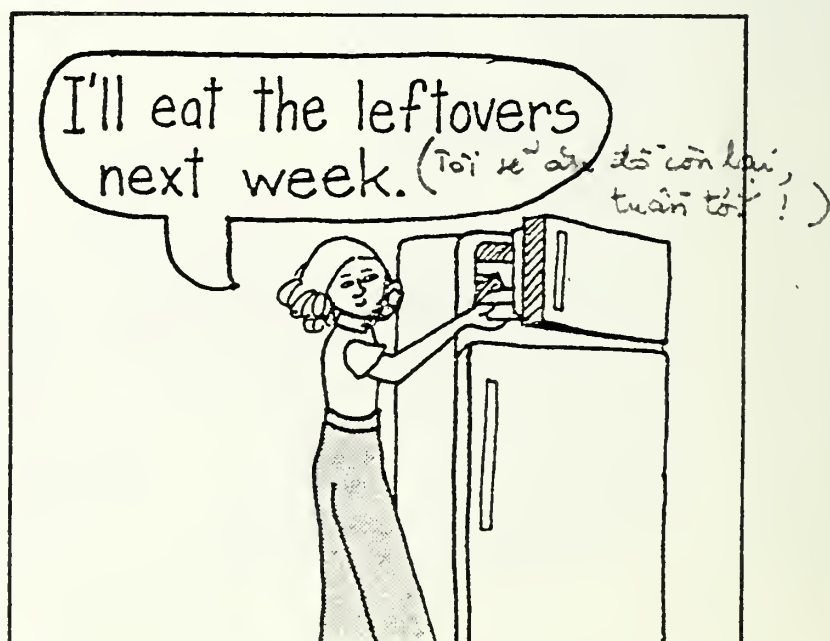 I'll eat the leftovers
next week. (Tôi sẽ ăn đồ còn lại,
tuần tới! )